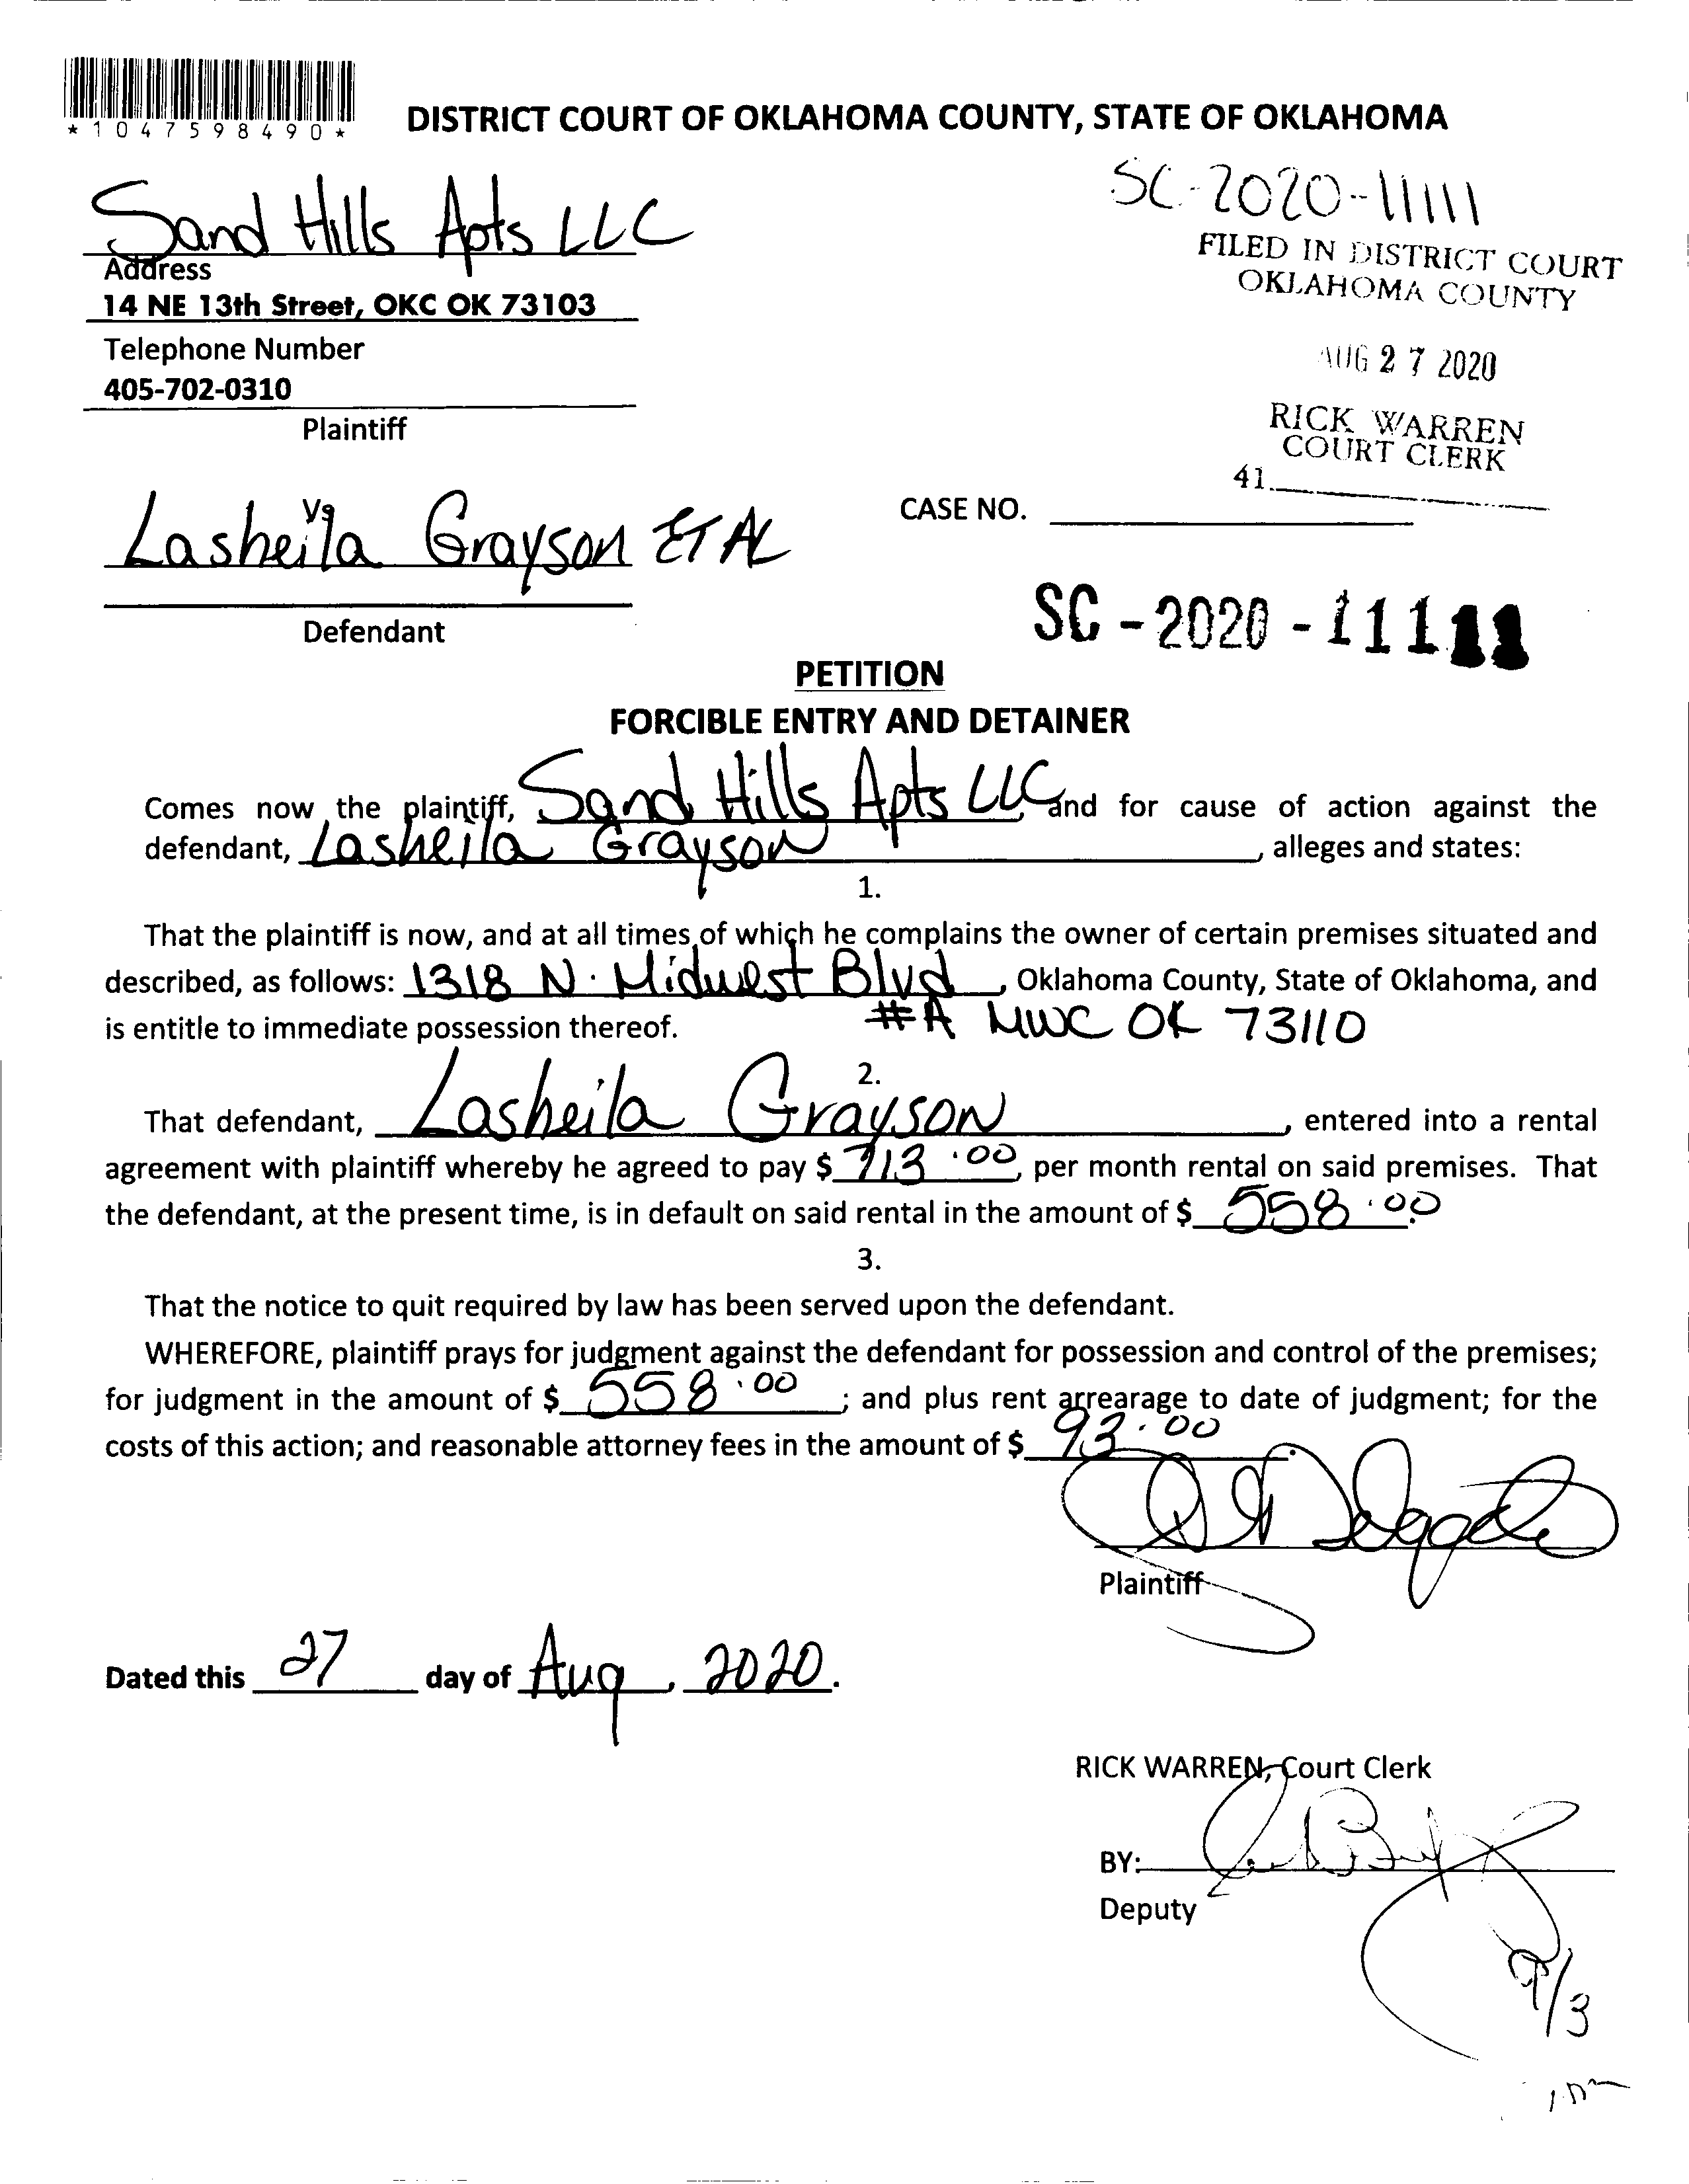 *1047598490*
DISTRICT COURT OF OKLAHOMA COUNTY, STATE OF OKLAHOMA
SC-2020-11111
Sand Hills Apts LLC
FILED IN DISTRICT COURT
OKLAHOMA COUNTY
Address
14 NE 13th Street, OKC OK 73103
Telephone Number
AUG 27 2020
405-702-0310
Plaintiff
RICK WARREN
COURT CLERK
41
Vs
CASE NO.
Lasheila Grayson ET AL
Defendant
SC-2020-11111
PETITION
FORCIBLE ENTRY AND DETAINER
Comes now the plaintiff, Sand Hills Apts LLC and for cause of action against the
defendant, Lasheila Grayson, alleges and states:
1.
That the plaintiff is now, and at all times of which he complains the owner of certain premises situated and
described, as follows: 1318 N. Midwest Blvd, Oklahoma County, State of Oklahoma, and
is entitle to immediate possession thereof. #A MWC OK 73110
2.
That defendant, Lasheila Grayson, entered into a rental
agreement with plaintiff whereby he agreed to pay $ 713.00, per month rental on said premises. That
the defendant, at the present time, is in default on said rental in the amount of $ 558.00.
3.
That the notice to quit required by law has been served upon the defendant.
WHEREFORE, plaintiff prays for judgment against the defendant for possession and control of the premises;
for judgment in the amount of $ 558.00; and plus rent arrearage to date of judgment; for the
costs of this action; and reasonable attorney fees in the amount of $ 93.00.
Plaintiff
Dated this 27 day of Aug, 2020.
RICK WARREN, Court Clerk
BY:
Deputy
9/3